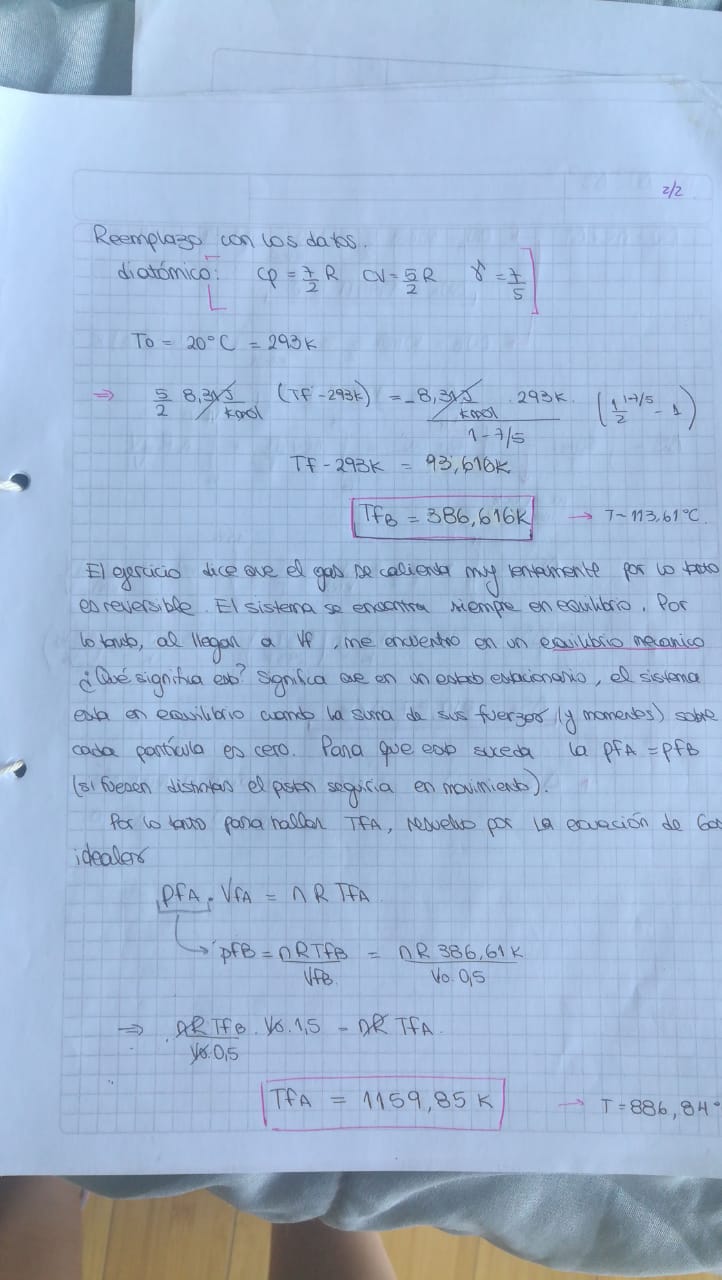 2/2
Reemplazo con los datos.
diatómico: cp = 7/2 R cv = 5/2 R γ = 7/5
To = 20°C = 293K
⇒ 5/2 8,31 J/kmol (Tf - 293K) = - 8,31 J/kmol . 293K / (1 - 7/5) (1/2^(1-7/5) - 1)
Tf - 293K = 93,616K
TfB = 386,616K → T ~ 113,61°C.
El ejercicio dice que el gas se calienta muy lentamente por lo tanto
es reversible. El sistema se encuentra siempre en equilibrio. Por
lo tanto, al llegar a Vf, me encuentro en un equilibrio mecanico
¿Qué significa esto? Significa que en un estado estacionario, el sistema
esta en equilibrio cuando la suma de sus fuerzas (y momentos) sobre
cada partícula es cero. Para que esto suceda la pfA = pfB
(si fuesen distintas el piston seguiria en movimiento).
Por lo tanto para hallar TfA, resuelvo por la ecuación de Gas
ideales
pfA . VfA = n R TfA
↳ pfB = n R TfB / VfB = n R 386,61K / Vo.0,5
⇒ n R TfB / Vo.0,5 . Vo.1,5 = n R TfA
TfA = 1159,85 K → T = 886,84°